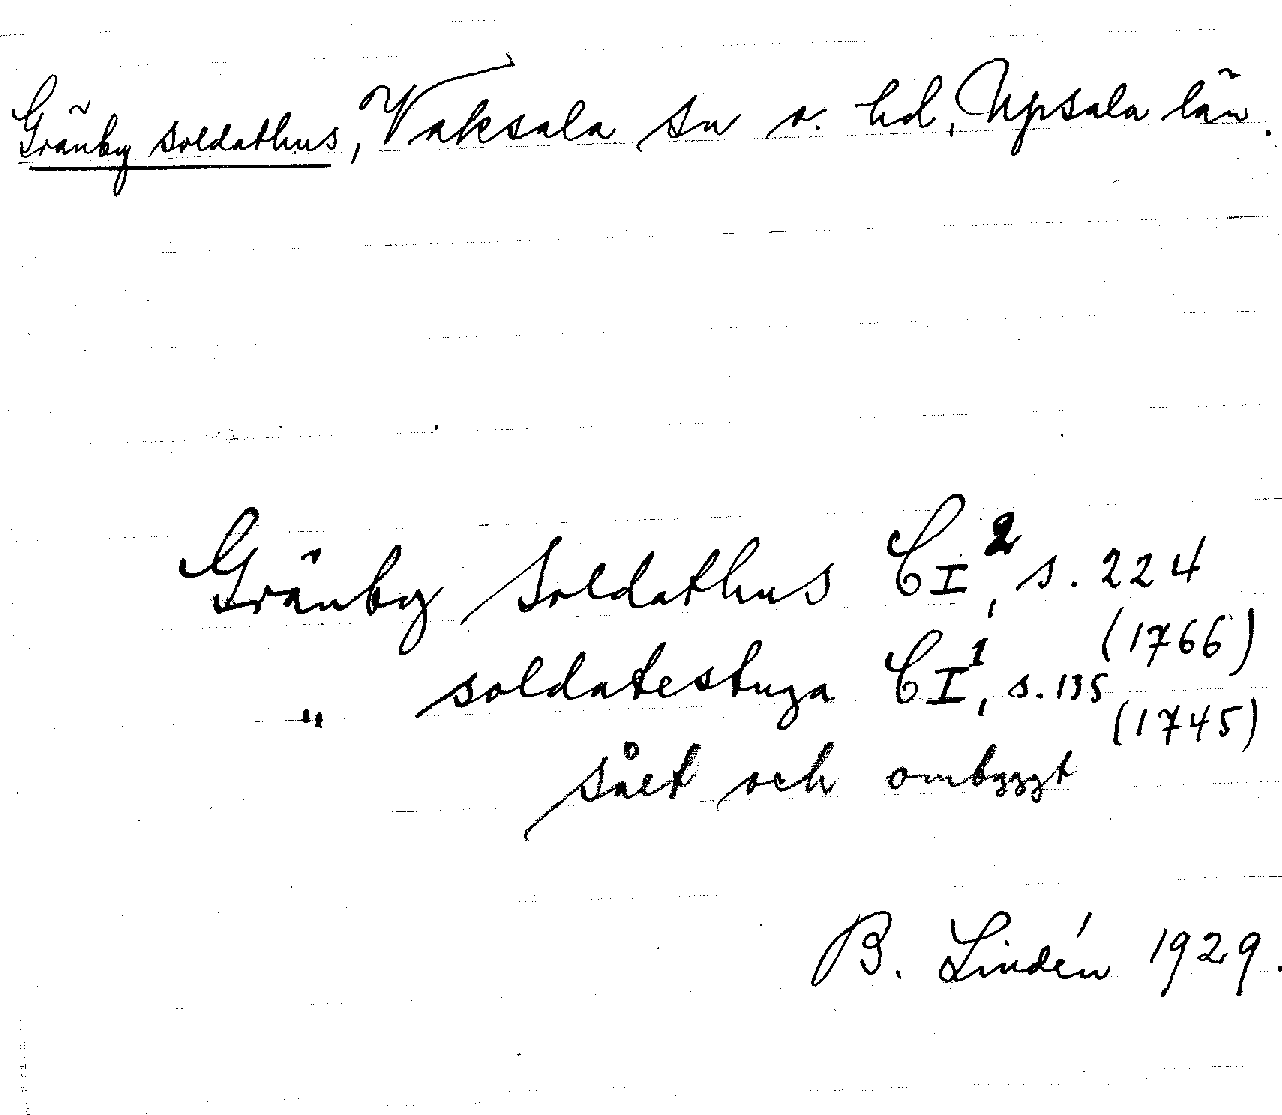 Gränby soldathus, Vaksala sn o. hd, Upsala län.
Gränby Soldathus CI², s. 224
(1766)
„ soldatestuga CI¹, s. 135
(1745)
sålt och ombyggt
B. Lindén 1929.